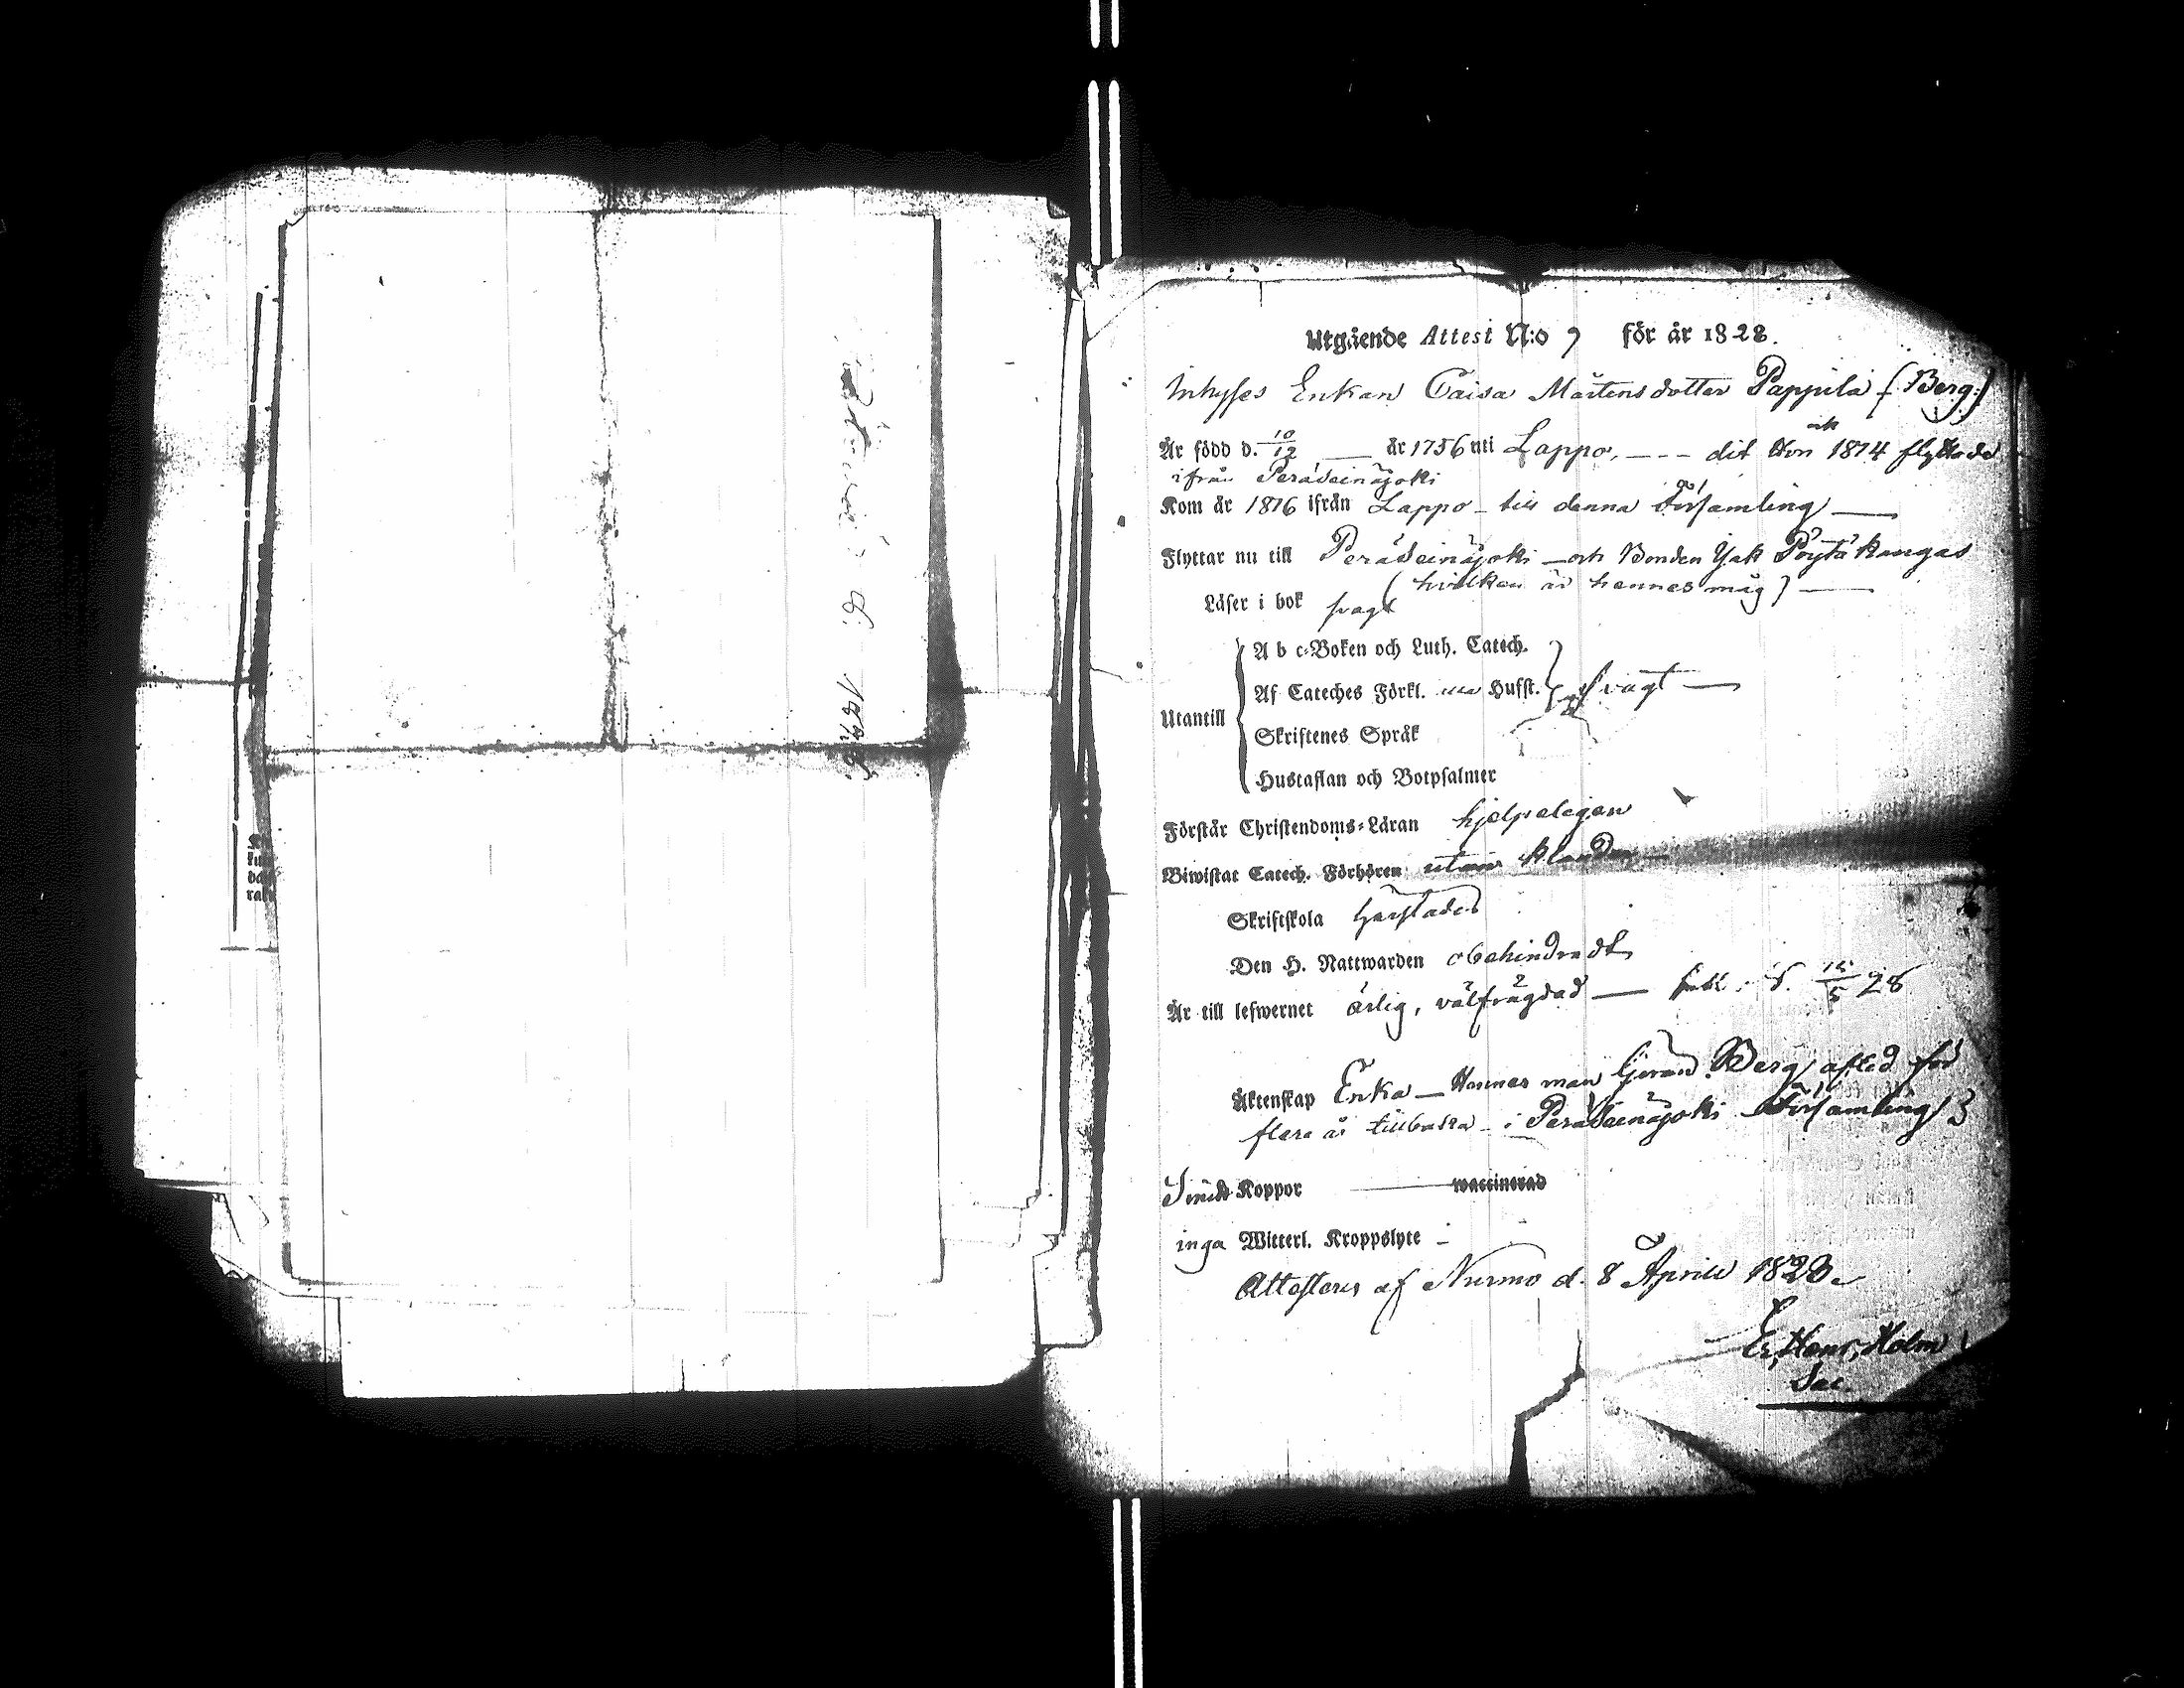 Utgående Attest N:o 7 för år 1828.
Inhyses Enkan Caisa Mårtensdotter Pappila (Berg)
Är född d. 10/12 — år 1756 uti Lappo, - - - dit Hon 1814 flyttade
ifrån Peräseinäjoki
Kom år 1816 ifrån Lappo - till denna Församling —
Flyttar nu till Peräseinäjoki — och Bonden Jak Pöytäkangas
(hvilken är hennes måg) —
Läser i bok svagt
Utantill
A b c-Boken och Luth. Catech.
Af Cateches Förkl. Husst. svagt —
Skriftenes Språk
Hustaflan och Botpsalmer
Förstår Christendoms-Läran hjelpeligen
Biwistat Catech. Förhören utan klander —
Skriftskola
Den H. Nattwarden obehindradt
Är till lefwernet ärlig, välfrägdad — d. 12/5 28
Äktenskap Enka — Hennes man Göran Berg afled för
flera år tillbaka - i Peräseinäjoki Församling
Koppor — waccinerad
inga Witterl. Kroppslyte -
Attesterar af Nurmo d. 8 Aprill 1828
Er. Henr. Holm
Sac.